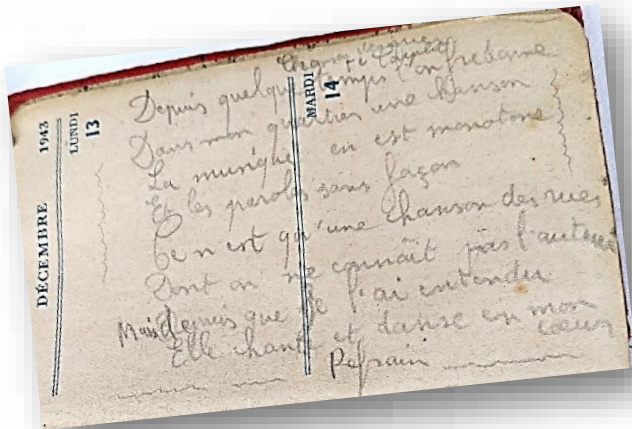 DÉCEMBRE 1943
LUNDI
13
MARDI
14
Chanson des rues
Depuis quelque temps l'on fredonne
Dans mon quartier une chanson
La musique en est monotone
Et les paroles sans façon
Ce n'est qu'une chanson des rues
Dont on ne connaît pas l'auteur
Mais depuis que je l'ai entendu
Elle chante et danse en mon
coeur
Refrain